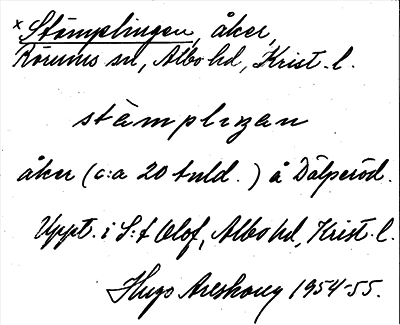 × Stämplingen, åker,
Rörums sn, Albo hd, Krist. l.
stämpligan
åker (c:a 20 tnld.) å Dälperöd.
Uppt. i S:t Olof, Albo hd, Krist. l.
Hugo Areskoug 1954-55.